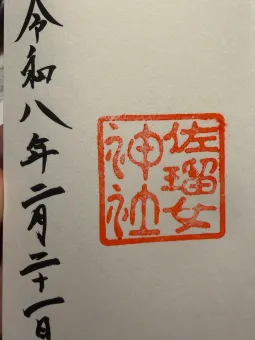 佐瑠女
神社
令和八年二月二十一日